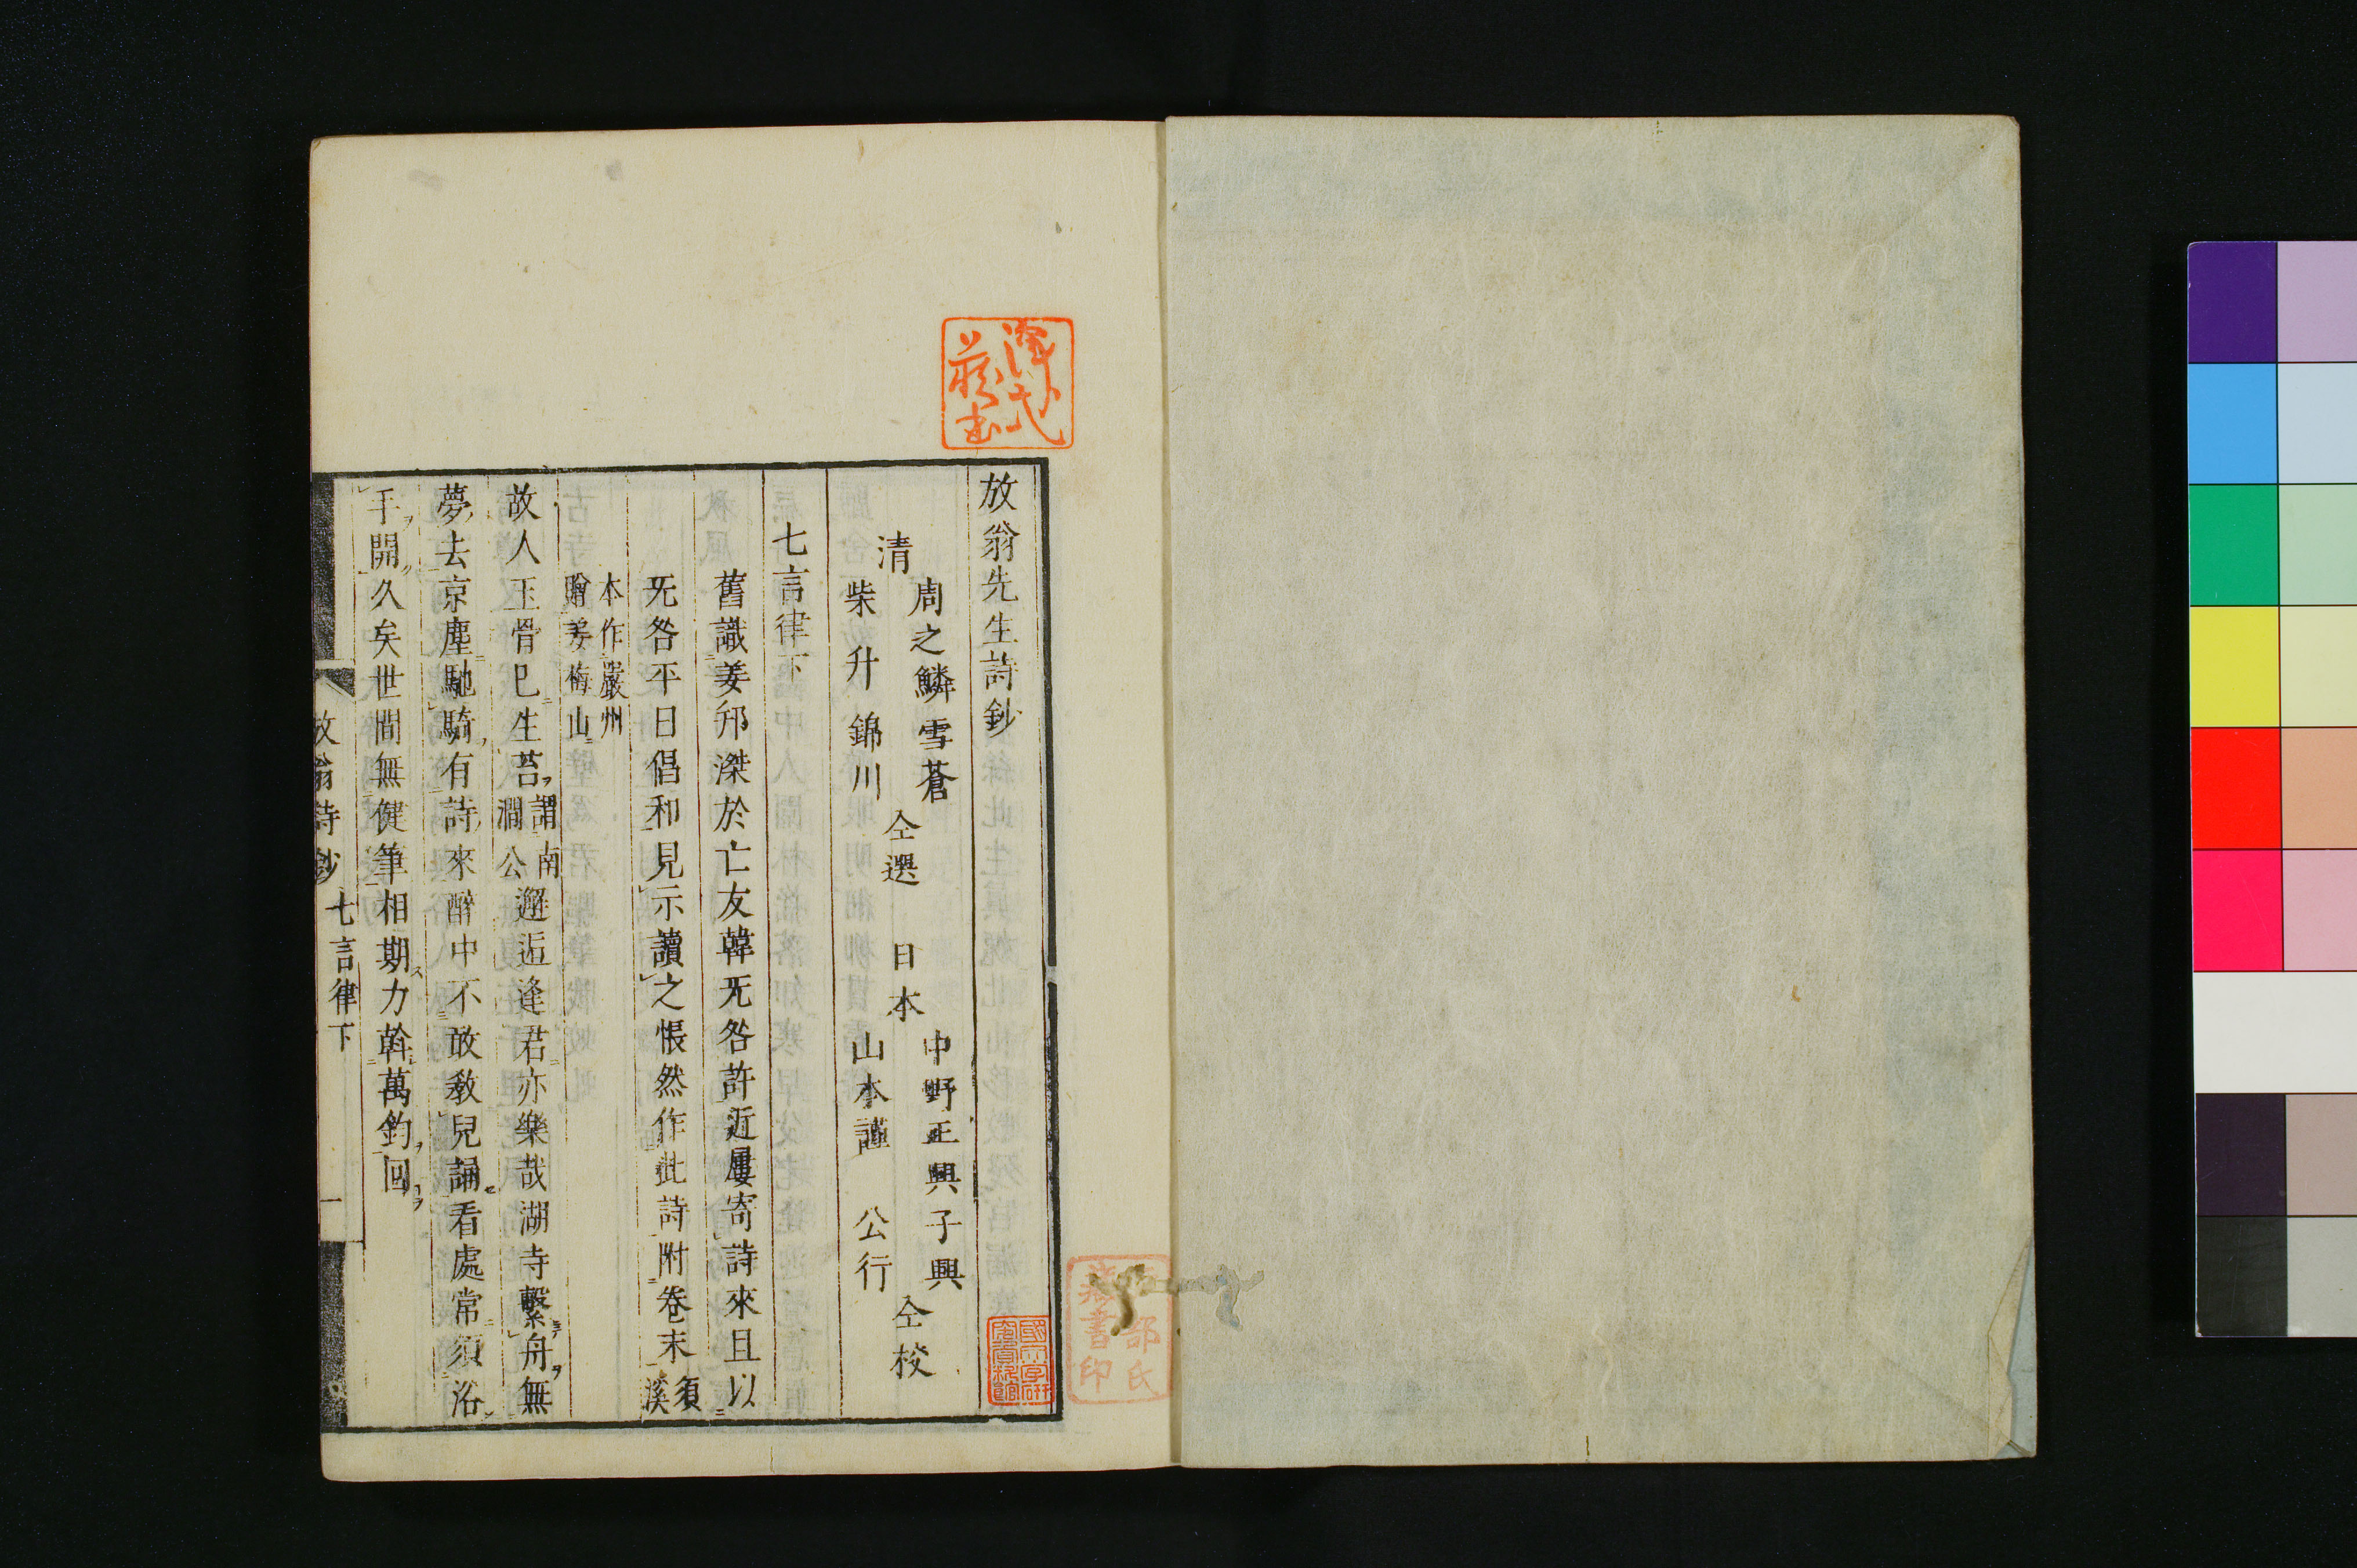 放翁先生詩鈔
清
周之鱗雪蒼
柴升錦川
仝選
日本
中野正興子興
山本謹公行
仝校
七言律下
舊識姜邦傑於亡友韓无咎許近屢寄詩來且以
无咎平日倡和見示讀之悵然作此詩附卷末
須溪
本作嚴州
贈姜梅山
故人玉骨已生苔
謂南
澗公
邂逅逢君亦樂哉湖寺繫舟無
夢去京塵馳騎有詩來醉中不敢教兒誦看處常須浴
手開久矣世間無健筆相期力斡萬鈞回
放翁詩鈔
七言律下
一
藏書印
部氏